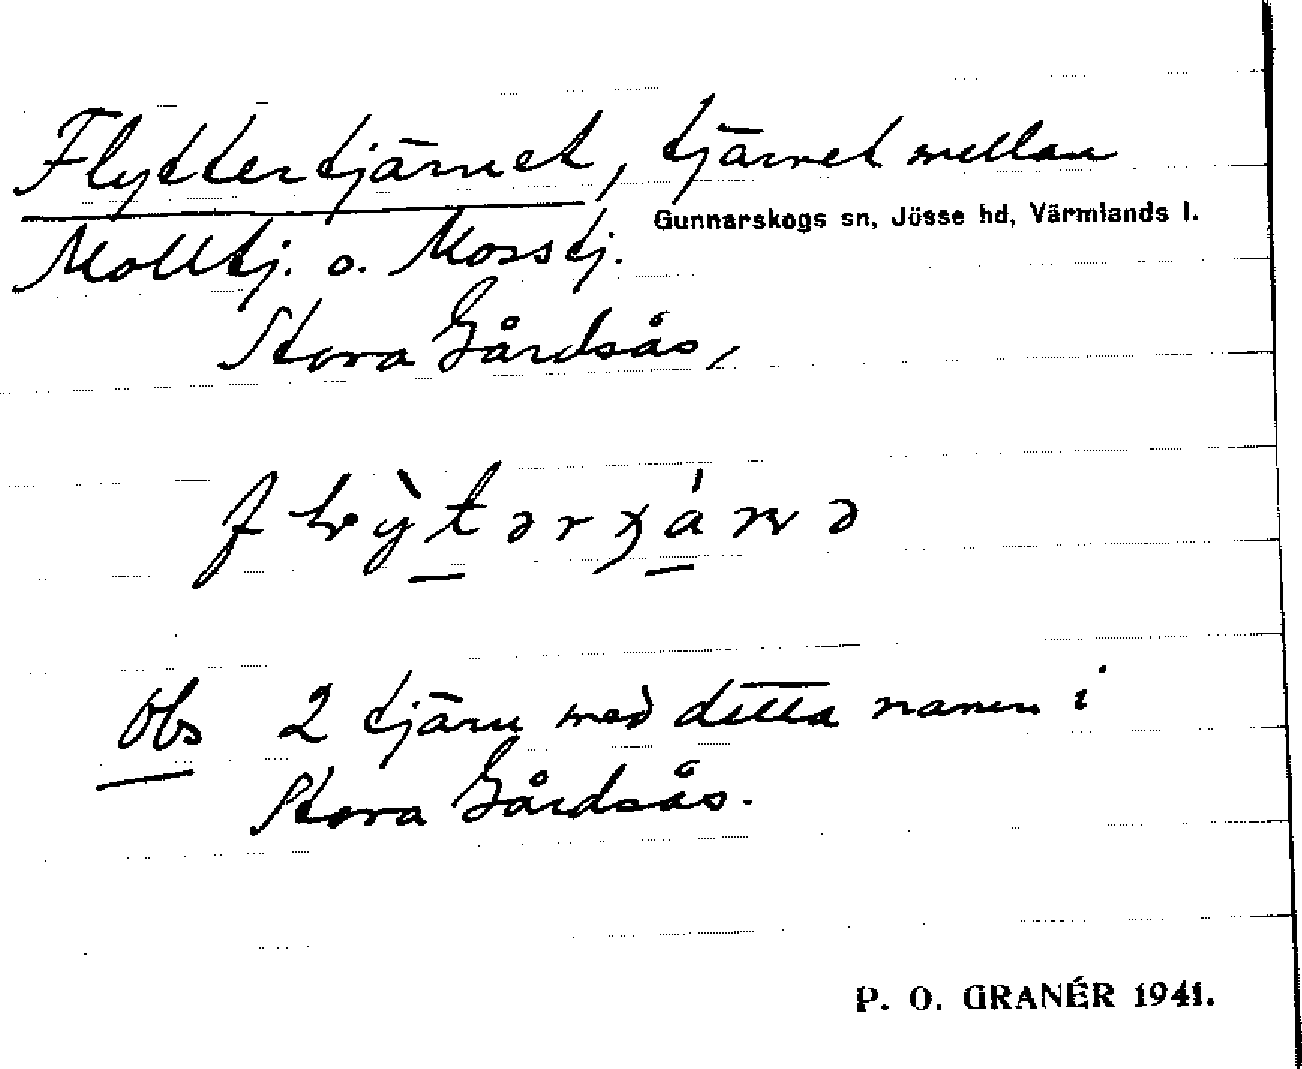 Flyttertjärnet, tjärnet mellan
Gunnarskogs sn, Jösse hd, Värmlands l.
Molltj. o. Mosstj.
Stora Gårdsås,
Obs 2 tjärn med detta namn i
Stora Gårdsås.
P. O. GRANÉR 1941.